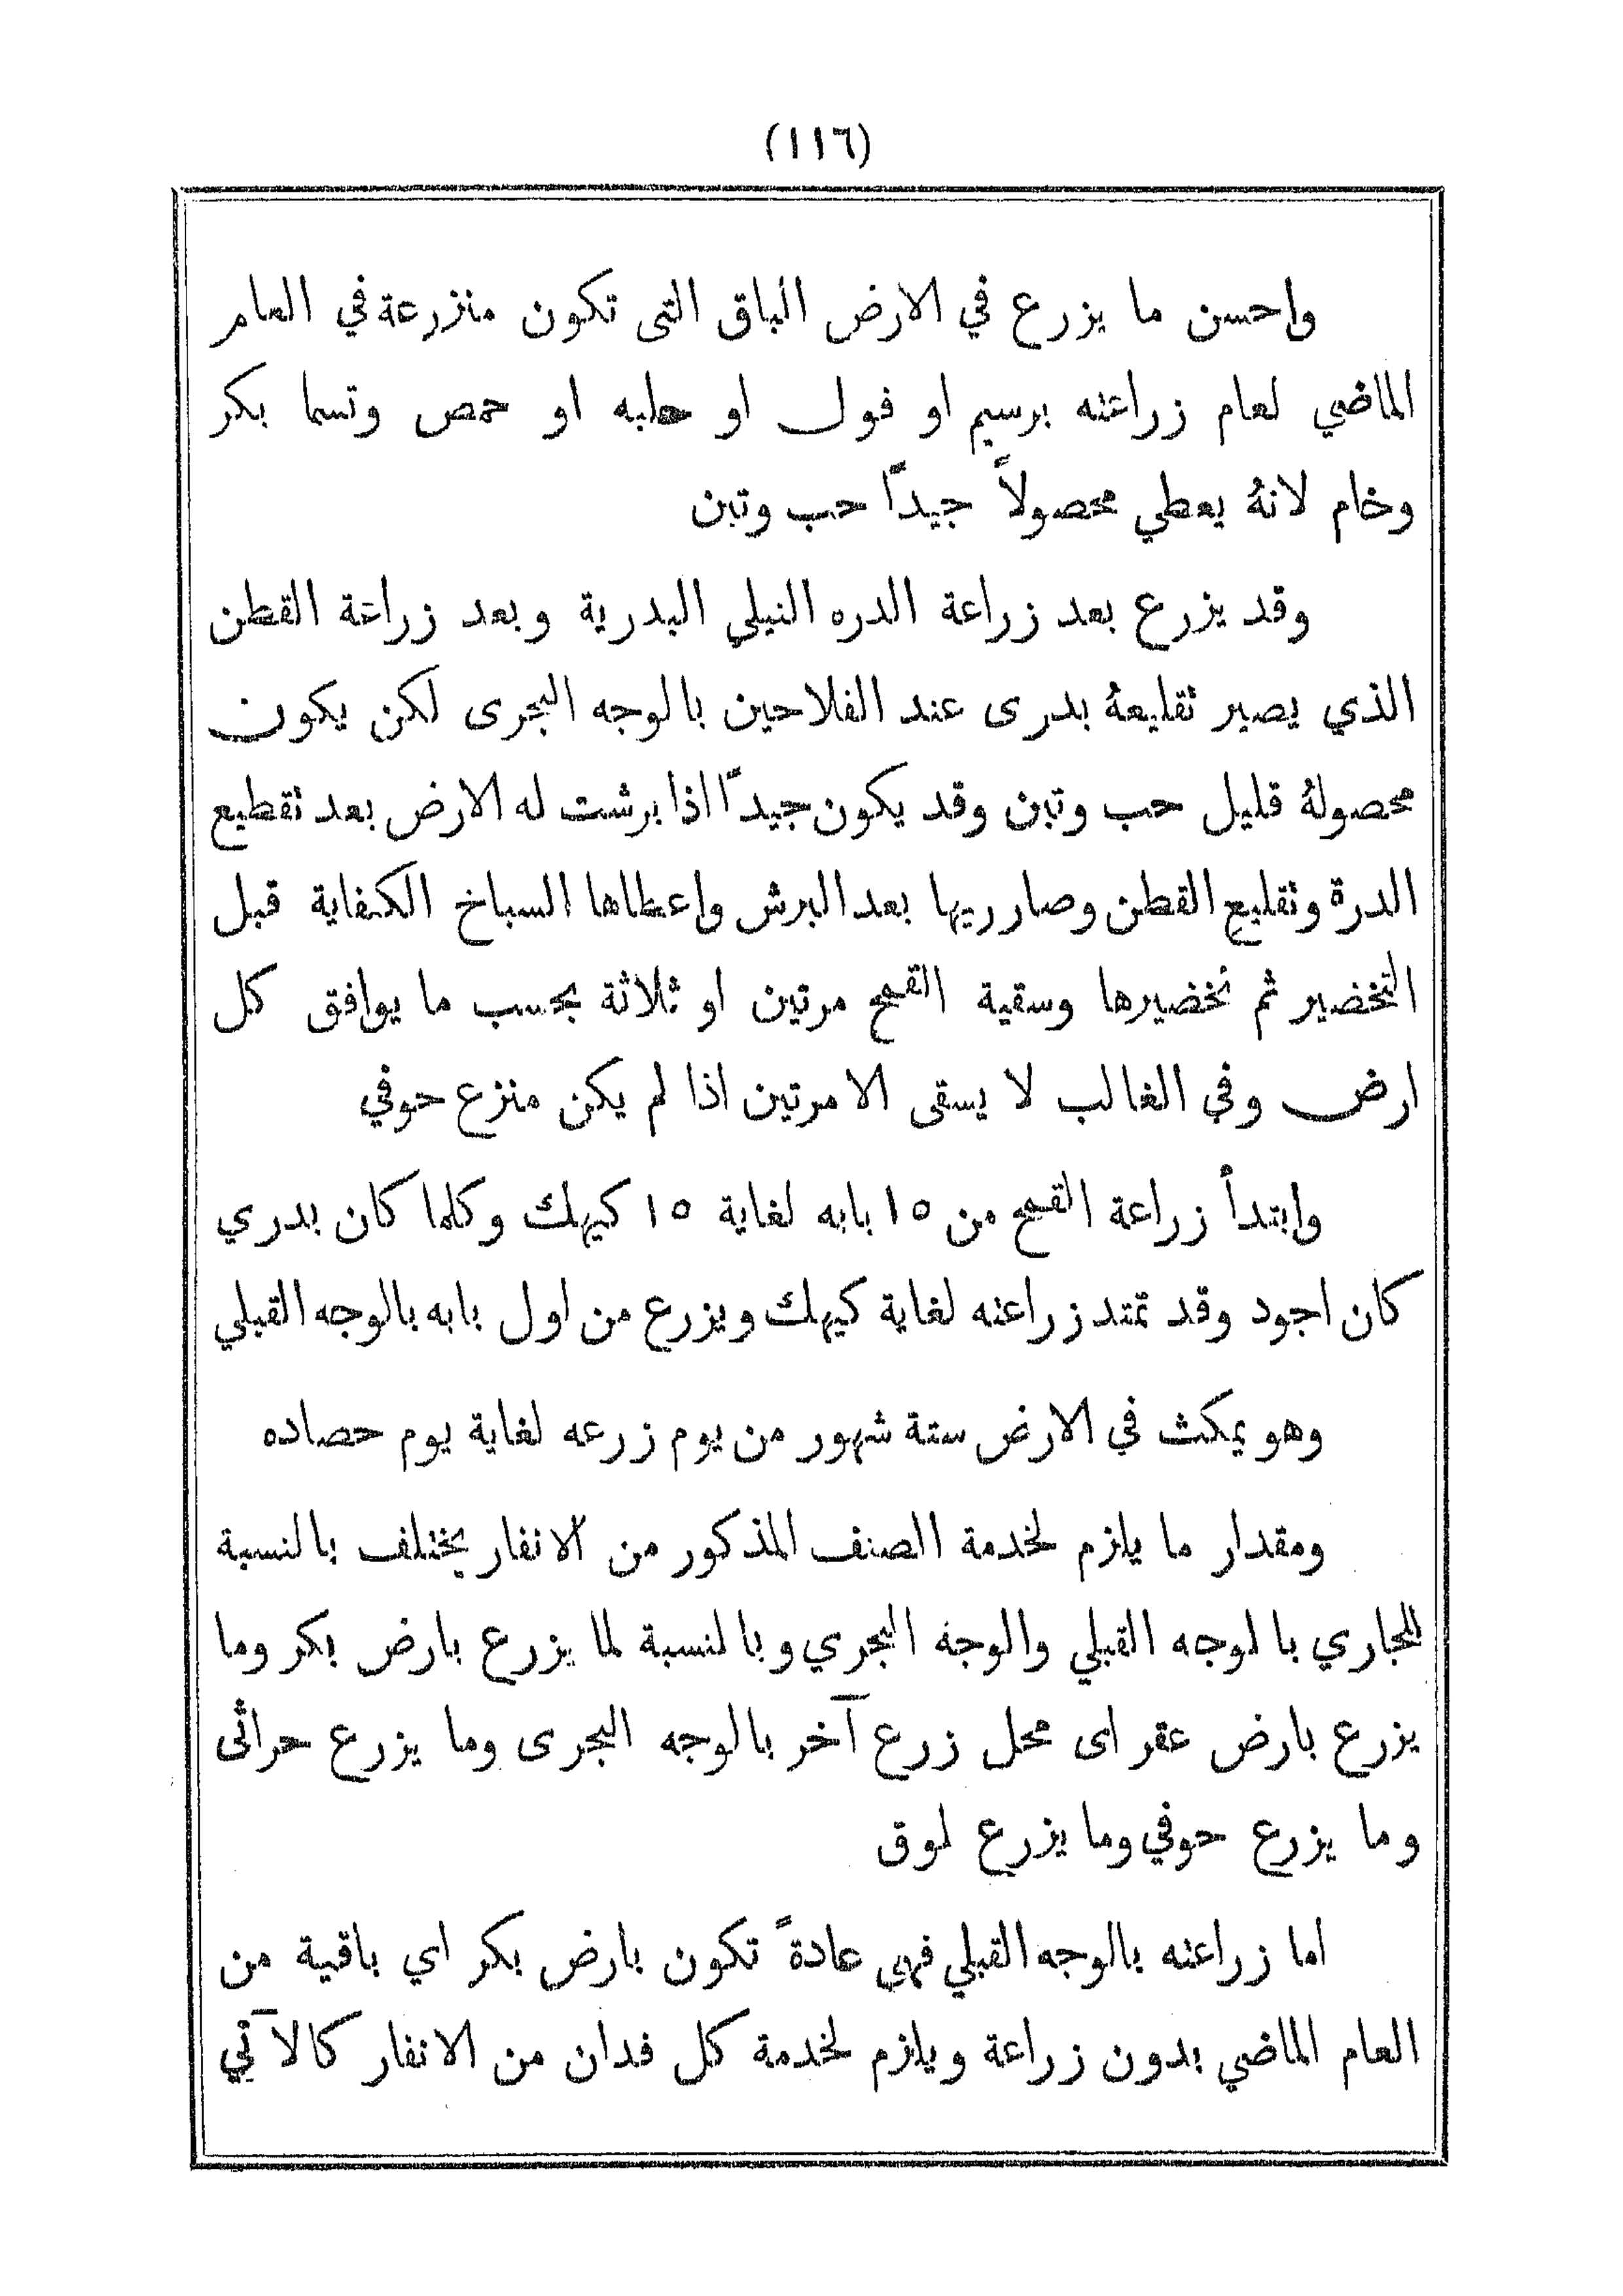 (١١٦)
واحسن ما يزرع في الارض الباق التى تكون منزرعة في العام
الماضي لعام زراعته برسيم او فول او حلبه او حمص وتسما بكر
وخام لانهُ يعطي محصولاً جيداً حب وتبن
وقد يزرع بعد زراعة الدره النيلي البدرية وبعد زراعة القطن
الذي يصير تقليعهُ بدرى عند الفلاحين بالوجه البحرى لكن يكون
محصولهُ قليل حب وتبن وقد يكون جيداً اذا برشت له الارض بعد تقطيع
الدرة وتقليع القطن وصار ريها بعد البرش واعطاها السباخ الكفاية قبل
التخضير ثم تخضيرها وسقية القمح مرتين او ثلاثة بحسب ما يوافق كل
ارض وفي الغالب لا يسقى الا مرتين اذا لم يكن منزع حوفي
وابتدأ زراعة القمح من ١٥ بابه لغاية ١٥ كيهك وكلما كان بدري
كان اجود وقد تمتد زراعته لغاية كيهك ويزرع من اول بابه بالوجه القبلي
وهو يمكث في الارض ستة شهور من يوم زرعه لغاية يوم حصاده
ومقدار ما يلزم لخدمة الصنف المذكور من الانفار يختلف بالنسبة
للجاري بالوجه القبلي والوجه البحري وبالنسبة لما يزرع بارض بكر وما
يزرع بارض عقر اى محل زرع آخر بالوجه البحرى وما يزرع حراثى
وما يزرع حوفي وما يزرع لوق
اما زراعته بالوجه القبلي فهى عادةً تكون بارض بكر اي باقية من
العام الماضي بدون زراعة ويلزم لخدمة كل فدان من الانفار كالآتي